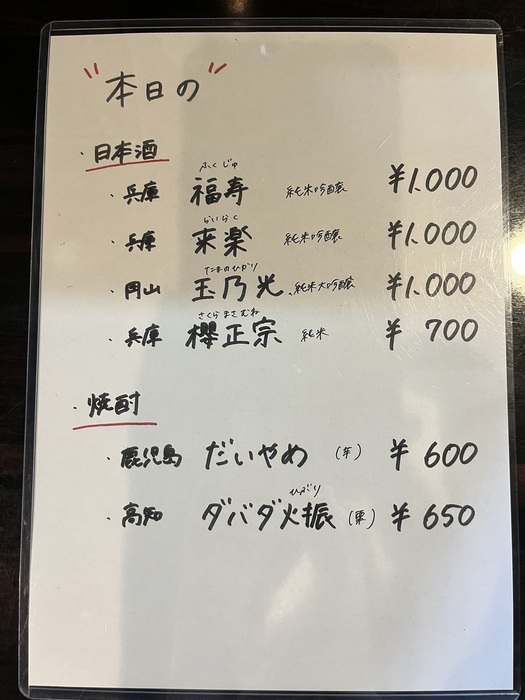 "本日の"
・日本酒
ふくじゅ
・兵庫 福寿 純米吟醸 ¥1,000
らいらく
・兵庫 来楽 純米吟醸 ¥1,000
たまのひかり
・岡山 玉乃光 純米大吟醸 ¥1,000
さくらまさむね
・兵庫 櫻正宗 純米 ¥ 700
・焼酎
・鹿児島 だいやめ (芋) ¥ 600
ひぶり
・高知 ダバダ火振 (栗) ¥ 650